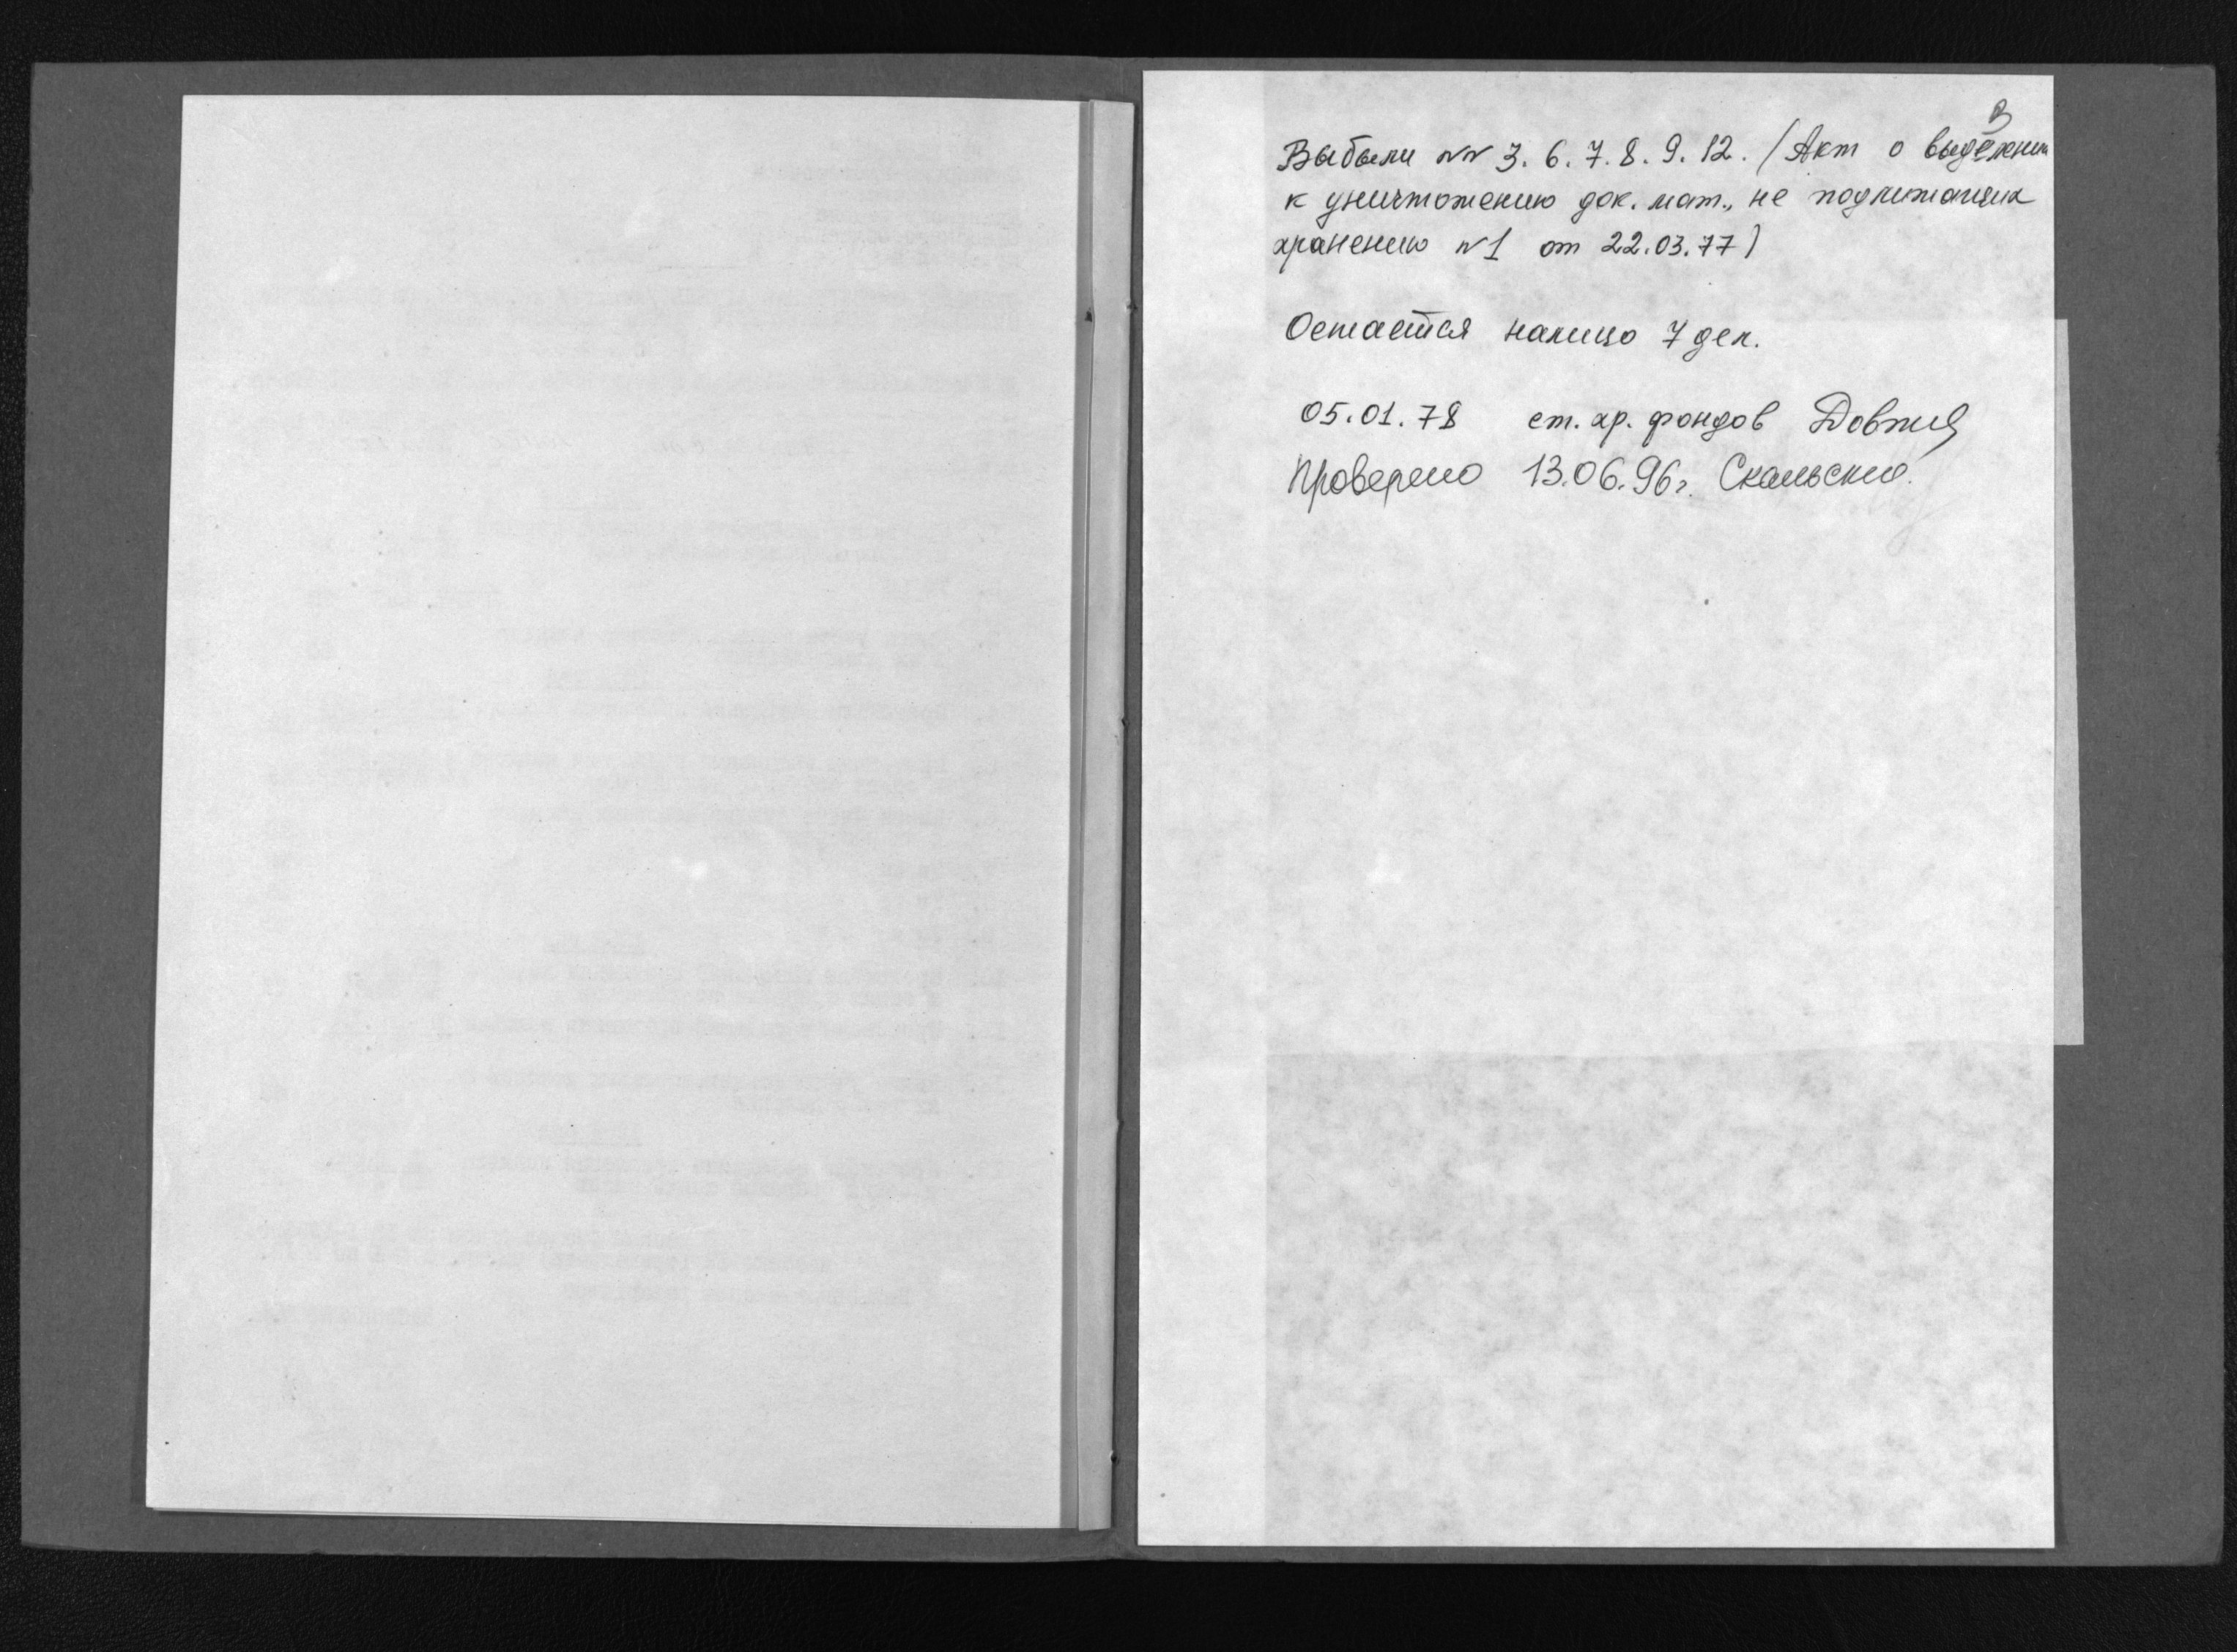 3
Выбыли №№ 3. 6. 7. 8. 9. 12. (Акт о выделении
к уничтожению док. мат., не подлежащих
хранению №1 от 22.03.77)
Остаётся налицо 7 дел.
05.01.78 ст. хр. фондов
Проверено 13.06.96г.